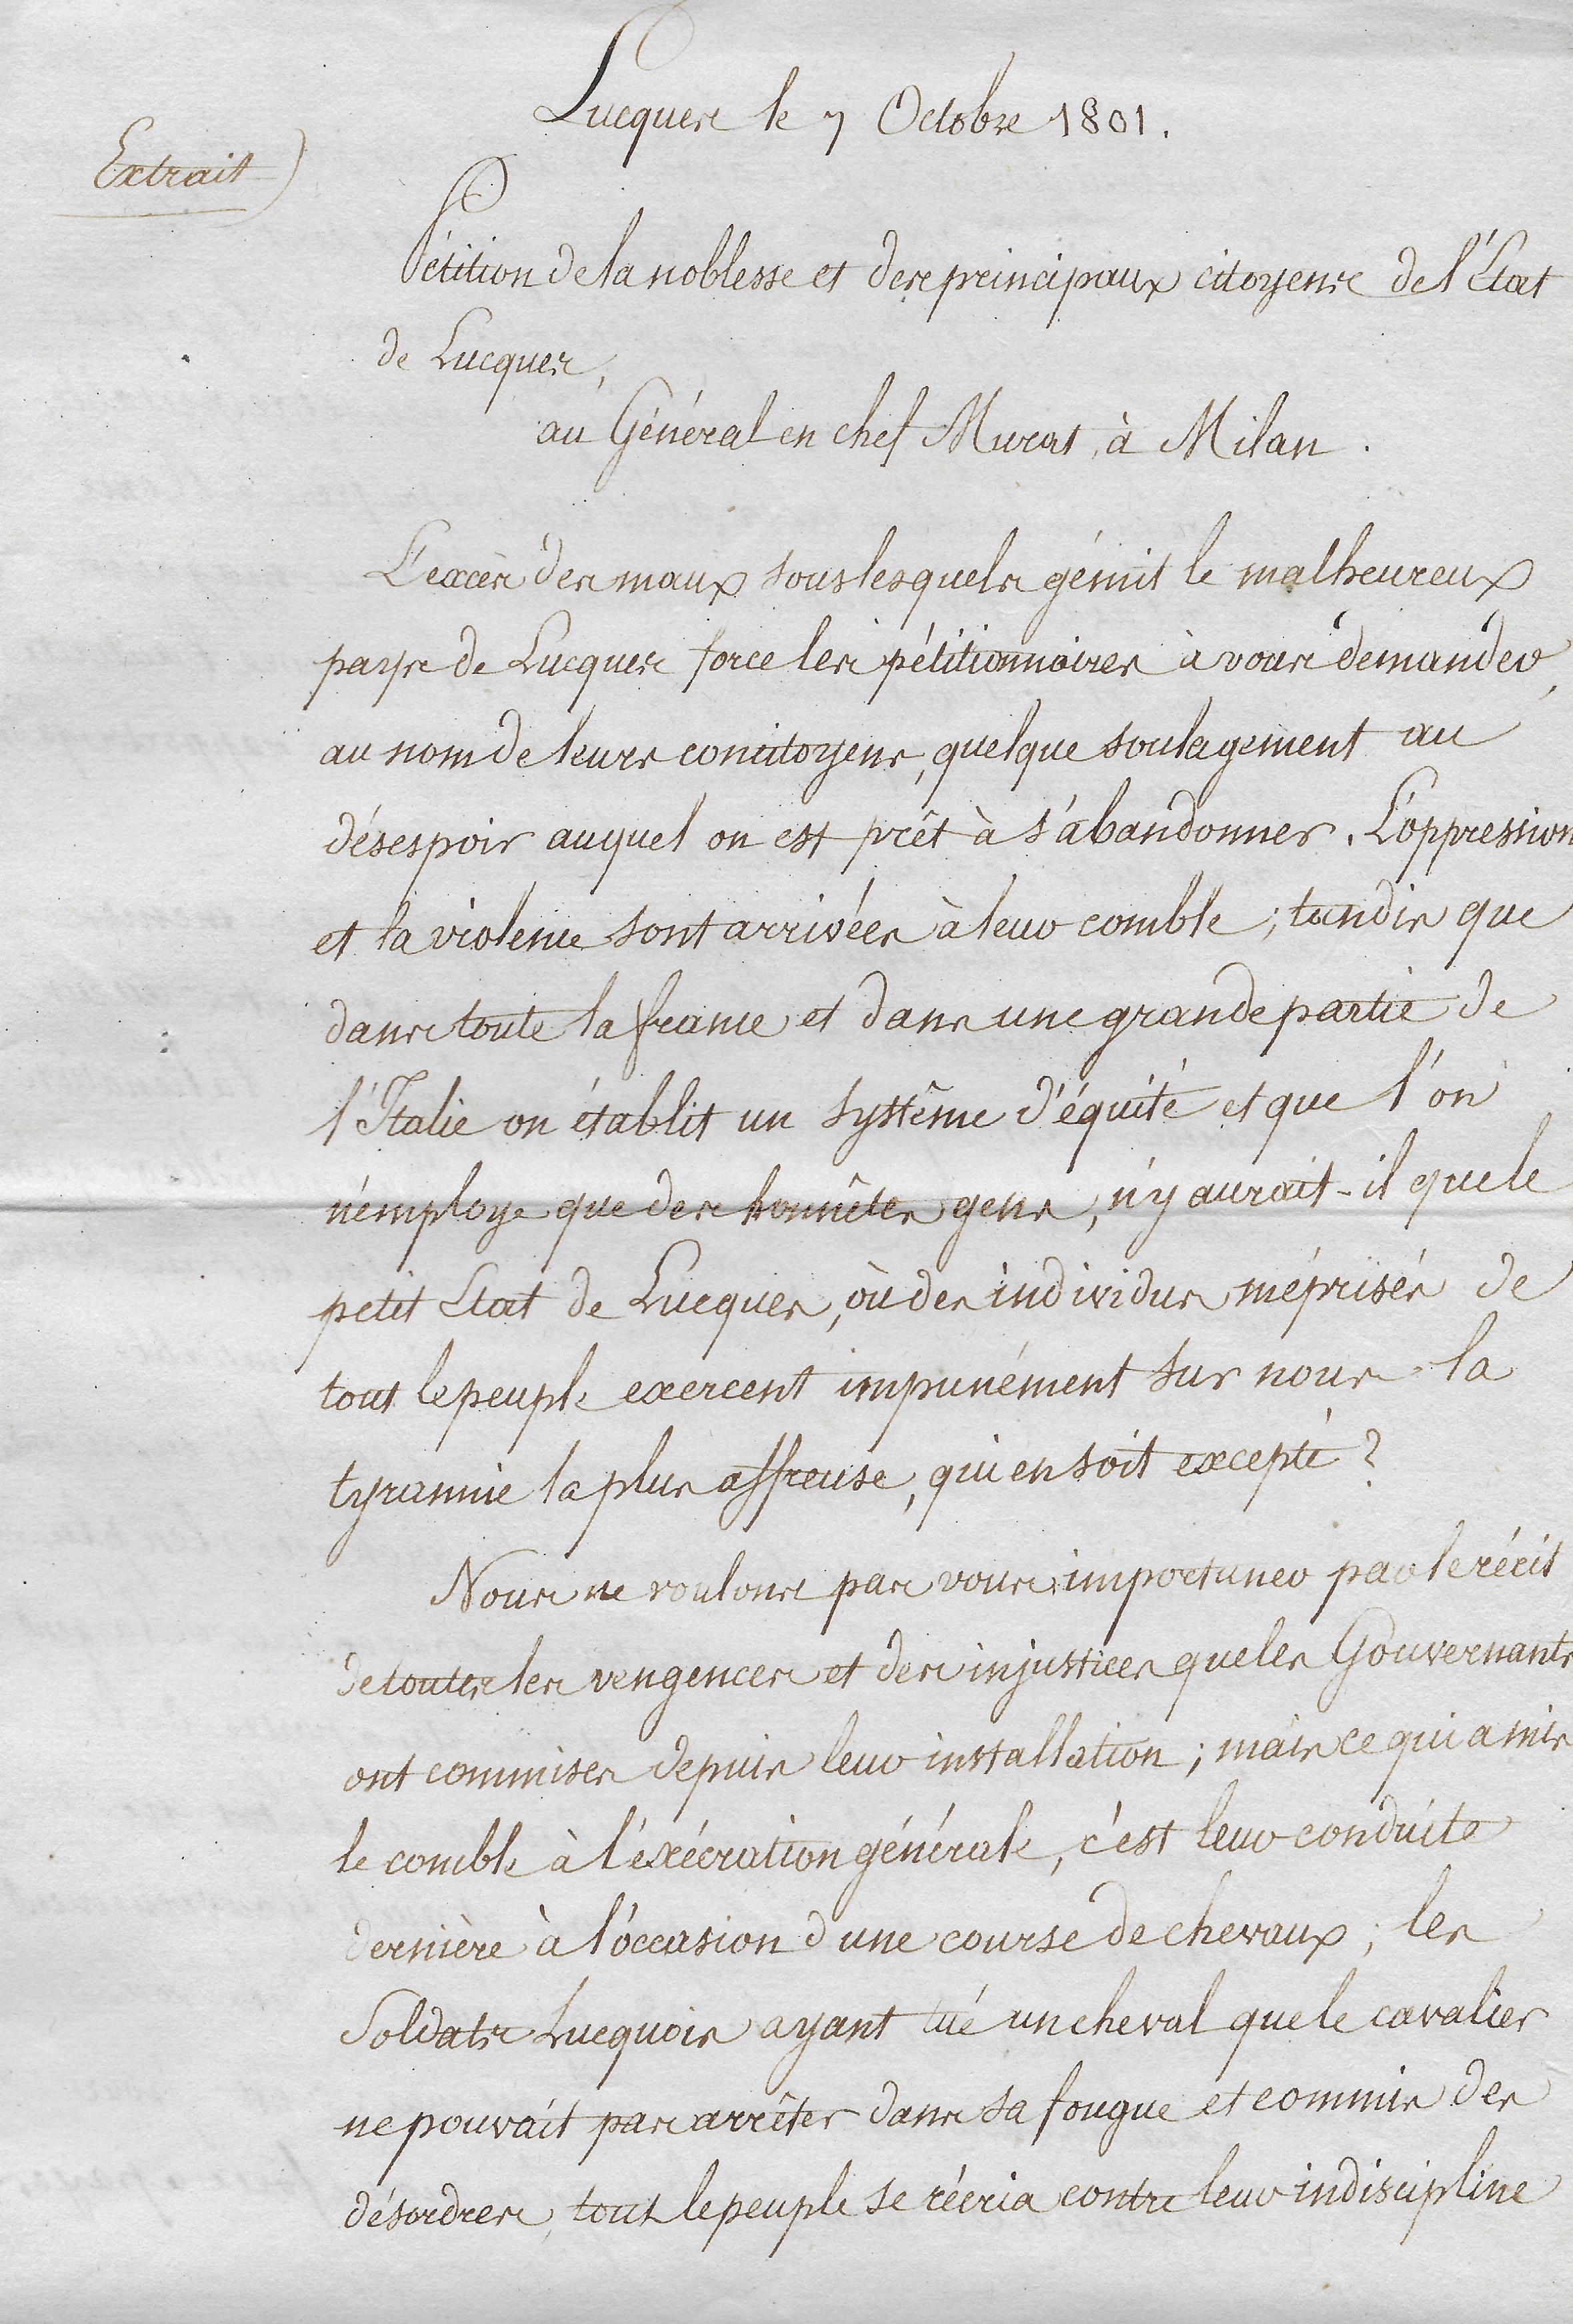 Lucques le 7 Octobre 1801.
Extrait
Pétition de la noblesse et des principaux citoyens de l'État
de Lucques,
au Général en chef Murat, à Milan.
L'excès des maux sous lesquels gémit le malheureux
pays de Lucques force les pétitionnaires à vous demander,
au nom de leurs concitoyens, quelque soulagement au
désespoir auquel on est prêt à s'abandonner. L'oppression
et la violence sont arrivées à leur comble; tandis que
dans toute la france et dans une grande partie de
l'Italie on établit un systême d'équité et que l'on
n'employe que des honnêtes gens, n'y aurait-il que le
petit Etat de Lucques, où des individus méprisés de
tout le peuple exercent impunément sur nous la
tyrannie la plus affreuse, qui en soit excepté?
Nous ne voulons pas vous importuner par le récit
de toutes les vengences et des injustices que les Gouvernants
ont commises depuis leur installation; mais ce qui a mis
le comble à l'exécration générale, c'est leur conduite
dernière à l'occasion d'une course de chevaux; les
Soldats Lucquois ayant tué un cheval que le cavalier
ne pouvait pas arrêter dans sa fougue et commis des
désordres, tout le peuple se récria contre leur indiscipline